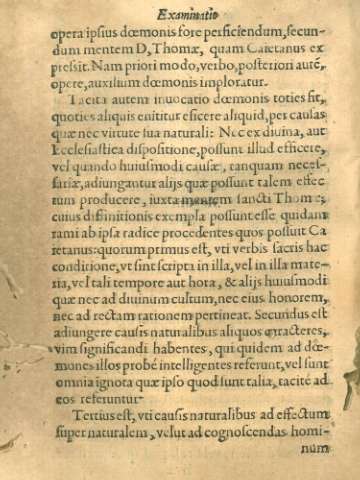 Examinatio
opera ipsius dœmonis fore perficiendum, secun-
dum mentem D, Thomæ, quam Caietanus ex
pressit. Nam priori modo, verbo, posteriori autē,
opere, auxilium dœmonis imploratur.
Tacita autem inuocatio dœmonis toties fit,
quoties aliquis enititur eficere aliquid, per causas
quæ nec virtute sua naturali: Nec ex diuina, aut
Ecclesiastica dispositione, possunt illud efficere,
vel quando huiusmodi causæ, tanquam neces-
sariæ, adiungantur alijs quæ possunt talem effec
tum producere, iuxta mentem sancti Thome;
cuius diffinitionis exempla possunt esse quidam
rami ab ipsa radice procedentes quos posuit Ca
ietanus: quorum primus est, vti verbis sacris hac
conditione, vt sint scripta in illa, vel in illa mate-
ria, vel tali tempore aut hora, & alijs huiusmodi
quæ nec ad diuinum cultum, nec eius honorem,
nec ad rectam rationem pertineat. Secundus est
adiungere causis naturalibus aliquos caracteres,
vim significandi habentes, qui quidem ad dœ-
mones illos probé intelligentes referunt, vel sunt
omnia ignota quæ ipso quod sunt talia, tacité ad
eos referuntur.
Tertius est, vti causis naturalibus ad effectum
super naturalem, velut ad cognoscendas homi-
num